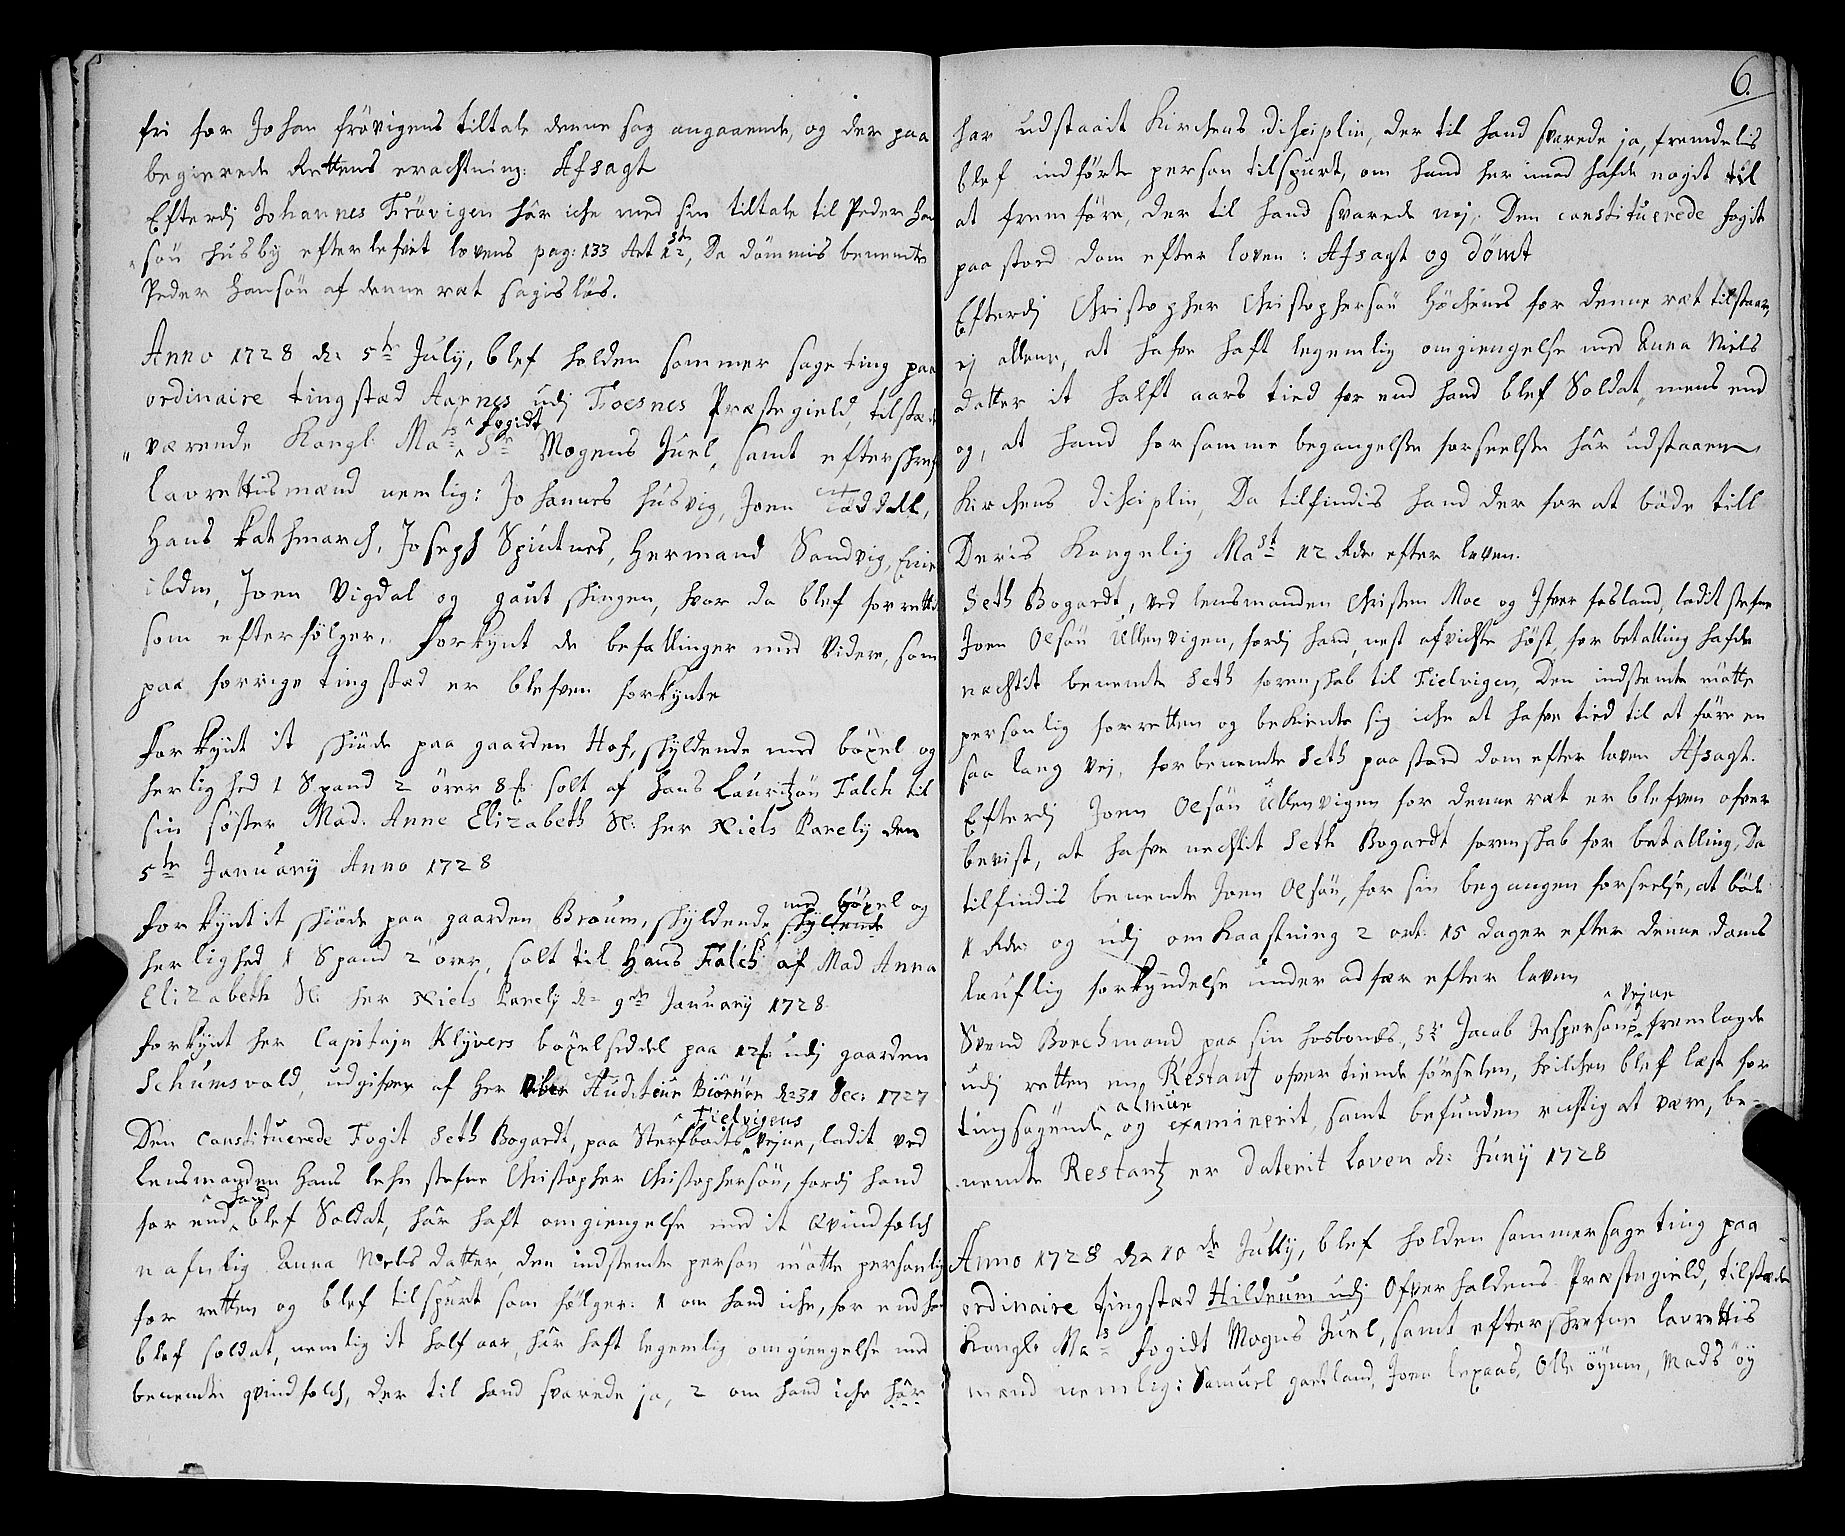 fri for Johan frövigens tiltale denne sag angaaende, og der paa
begierede Rettens eragtning: Afsagt
Efterdj Johannes Frövigen hâr iche med sin tiltale til Peder Han
söu Husby efterlefvet lovens pag: 133 Art 12, Da dömmis benemte
Peder Hansöu af denne ræt sagislös.
Anno 1728 d: 5te July, blef holden sommer sageting paa
ordinaire tingstæd Aarnes udj Foesnes Præstegield, tilstæde
værende Kongl: Mats fogidt Sr Mogens Juel, samt efterschrefne
lavrettismænd nemlig: Johannes Husvig, Joen Fæddell,
Hans Kathmarch, Joseph Spiutnes, Hermand Sandvig,
ibdm, Joen Vigdal og gaut Skingen, hvor da blef forrettet
som efterfölger. Forkÿnt de befallinger med Videre, som
paa forrige tingstæd er blefven forkÿnte
Forkÿnt it skiöde paa gaarden Hof, skÿldende med böxel og
herlighed 1 Spand 2 örer 8 solt af Hans Lauritzön Falch til
sin söster Mad. Anne Elizabeth Sl: her Niels Parelÿ den
5te January Anno 1728
Forkÿnt it skiöde paa gaarden Broum, skÿldende skÿldende med böxel og
herlighed 1 Spand 2 örer, solt til Hans Falch af Mad Anna
Elizabeth Sl: her Niels Parelÿ d: 9de January 1728.
Forkÿnt her Capitajn Klÿvers böxelseddel paa 12 udj gaarden
Schumsvold, udgifven af Her Auditeur Biörnör d: 31 Dec: 1727
Den Constituerede Fogit Seth Bogardt, paa Sterfboets Fielvigens vejne, ladit ved
Lensmanden Hans Lehn stefne Christopher Christophersöu, fordj hand
for end hand blef Soldat, hâr haft omgiengelse med it Qvindfolch
nafnlig Anna Niels datter, den indstemte person mötte personlig
for retten og blef tilspurt som fölger: 1 om hand iche, for end hand
blef soldat, nemlig it half aar, hâr haft legemlig omgiengelse med
benemte qvindfolch, der til hand svarede ja, 2 om hand iche hâr
6.
har udstaait Kirchens disciplin, der til hand svarede ja, fremdelis
blef indförte person tilspurt, om hand her imod hafde nogit til
at fremföre, der til hand svarede nej, Den constituerede fogit
paastod dom efter loven: Afsagt og dömt
Efterdj Christopher Christophersöu Höchnes for denne ræt tilstaar,
ej alleene, at hafve haft legemlig omgiengelse med Anna Niels
datter it halft aars tied for end hand blef Soldat, mens end
og, at hand for samme begangelse forseelse hâr udstaaen
Kirchens disciplin, Da tilfindis hand der for at böde till
Deris Kongelig Mast 12 Rdr efter loven.
Seth Bogardt, ved lensmanden Christen Moe og Ifver fosland, ladit stefne
Joen Olsöu Ullenvigen, fordj hand, nest afvichte höst, for betalling hafde
nechtit benemte Seth forenskab til Fielvigen, Den indstemte mötte
personlig for retten og bekiente sig iche at hafve tied til at före en
saa lang vej, forbenemte Seth paastod dom efter loven Afsagt.
Efterdj Joen Olsöu Ullenvigen for denne ræt er blefven ofver
bevist, at hafve nechtit Seth Bogardt forenskab for betalling, Da
tilfindis benemte Joen Olsöu, for sin begangen forseelse, at böde
1 Rdr og udj omkaastning 2 ort: 15 dager efter denne doms
lauflig forkÿndelse under adfær efter loven
Svend Borchmand paa sin Hosbonds, Sr Jacob Jespersöns vejne fremlagde
udj retten en Restantz ofver tiende förselen, hvilchen blef læst for
tingsögende almue og examinerit, samt befunden rigtig at være, be-
nemte Restantz er daterit Loven d: Juny 1728
Anno 1728 d: 10de July, blef holden sommersageting paa
ordinaire tingstæd Hildrum udj Ofverhaldens Præstegield, tilstæde
Kongl: Mats fogidt Mogns Juel, samt efterschrefne lavrettis
mænd nemlig: Samuel garland, Joen Lexaas, Olle öÿum, Mads öÿ